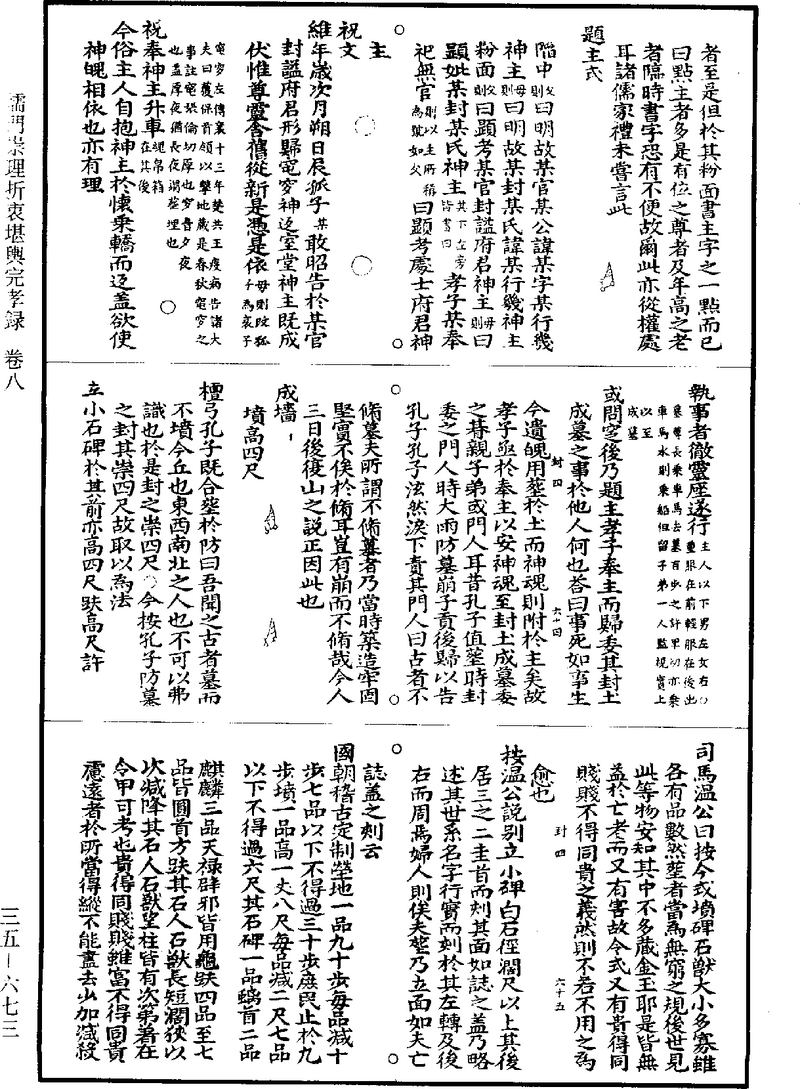 者至是但於其粉面書主字之一點而已
曰點主者多是有位之尊者及年高之老
者臨時書字恐有不便故爾此亦從權處
耳諸儒家禮未嘗言此
題主式
陷中父則曰明故某官某公諱某字某行幾
神主母則曰明故某封某氏諱某行幾神主
粉面父則曰顯考某官封諡府君神主母則曰
顯妣某封某氏神主其下左旁皆書曰孝子某奉
祀無官則以生所稱為號如父曰顯考處士府君神
主
祝文
維年歲次月朔日辰孤子某敢昭告於某官
封諡府君形歸窀穸神返室堂神主既成
伏惟尊靈舍舊從新是憑是依母則改孤子為哀子
窀穸左傳襄十三年楚共王疾病告諸大
夫曰獲保首領以歿地歲是春秋窀穸之
事註窀張倫切厚也穸音夕夜
也孟厚夜猶長夜謂葬埋也
祝奉神主升車魂帛箱在其後
今俗主人自抱神主於懷乘轎而返蓋欲使
神魄相依也亦有理
儒門崇理折衷堪輿完孝録 卷八
執事者徹靈座遂行主人以下男左女右
重服在前輕服在後出
墓尊長乘車馬去墓百步之許卑幼亦乘
車馬水則乘船但留子弟一人監視實土
以至
成墓
或問窆後乃題主孝子奉主而歸委其封土
成墓之事於他人何也答曰事死如事生
今遺魄用葬於土而神魂則附於主矣故
孝子亟於奉主以安神魂至封土成墓委
之朞親子弟或門人耳昔孔子值葬時封
委之門人時大雨防墓崩子貢後歸以告
孔子孔子泫然淚下責其門人曰古者不
脩墓夫所謂不脩墓者乃當時築造牢固
堅實不俟於脩耳豈有崩而不脩哉今人
三日後復山之說正因此也
成墻
墳高四尺
檀弓孔子既合葬於防曰吾聞之古者墓而
不墳今丘也東西南北之人也不可以弗
識也於是封之崇四尺○今按孔子防墓
之封其崇四尺故取以為法
立小石碑於其前亦高四尺趺高尺許
封四
六十四
司馬溫公曰按今式墳碑石獸大小多寡雖
各有品數然葬者當為無窮之規後世見
此等物安知其中不多藏金玉耶是皆無
益於亡者而又有害故令式又有貴得同
賤賤不得同貴之義然則不若不用之為
愈也
封四
六十五
按溫公說別立小碑白石徑濶尺以上其後
居三之二圭首而刻其面如誌之蓋乃略
述其世系名字行實而刻於其左轉及後
右而周焉婦人則俟夫葬乃立面如夫亡
誌蓋之刻云
國朝稽古定制塋地一品九十步每品减十
步七品以下不得過三十步庶民止於九
步墳一品高一丈八尺每品减二尺七品
以下不得過六尺其石碑一品螭首二品
麒麟三品天禄辟邪皆用龜趺四品至七
品皆圓首方趺其石人石獸長短濶狹以
次减降其石人石獸望柱皆有次第著在
令甲可考也貴得同賤賤雖富不得同貴
慮遠者於所當得縱不能盡去少加减殺
三五—六七三